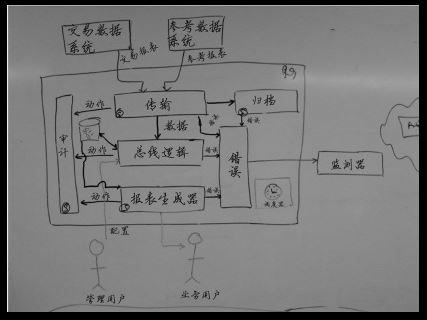 交易数据
系统
参考数据
系统
交易报表
参考报表
传输
归档
动作
数据
错误
错误
审计
动作
总线逻辑
错误
错误
监测器
动作
报表生成器
错误
调度器
配置
管理用户
业务用户